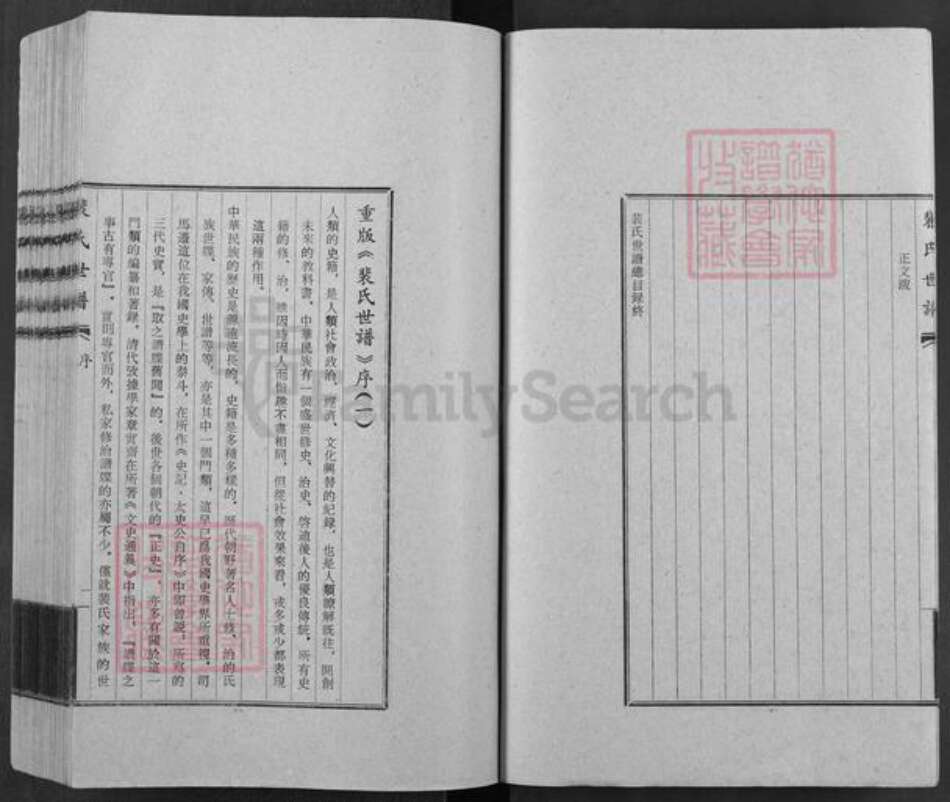 裴氏世譜
正文跋
裴氏世譜總目録終
重版《裴氏世譜》序(一)
人類的史籍，是人類社會政治、經濟、文化興替的紀録，也是人類瞭解既往，開創
未來的教科書。中華民族有一個盛世修史、治史，啓迪後人的優良傳統。所有史
籍的修、治，雖因時因人而指趣不盡相同，但從社會效果來看，或多或少都表現
這兩種作用。
中華民族的歷史是源遠流長的，史籍是多種多樣的，歷代朝野著名人士修、治的氏
族世牒、家傳、世譜等等，亦是其中一個門類，這早已爲我國史學界所重視。司
馬遷這位在我國史學上的泰斗，在所作《史記·太史公自序》中即曾説，所寫的
三代史實，是『取之譜牒舊聞』的。後世各個朝代的『正史』，亦多有關於這一
門類的編纂和著録。清代攷據學家章實齋在所著《文史通義》中指出，『譜牒之
事古有專官』，實則專官而外，私家修治譜牒的亦屬不少。僅就裴氏家族的世
裴氏世譜
序
一
FamilySearch